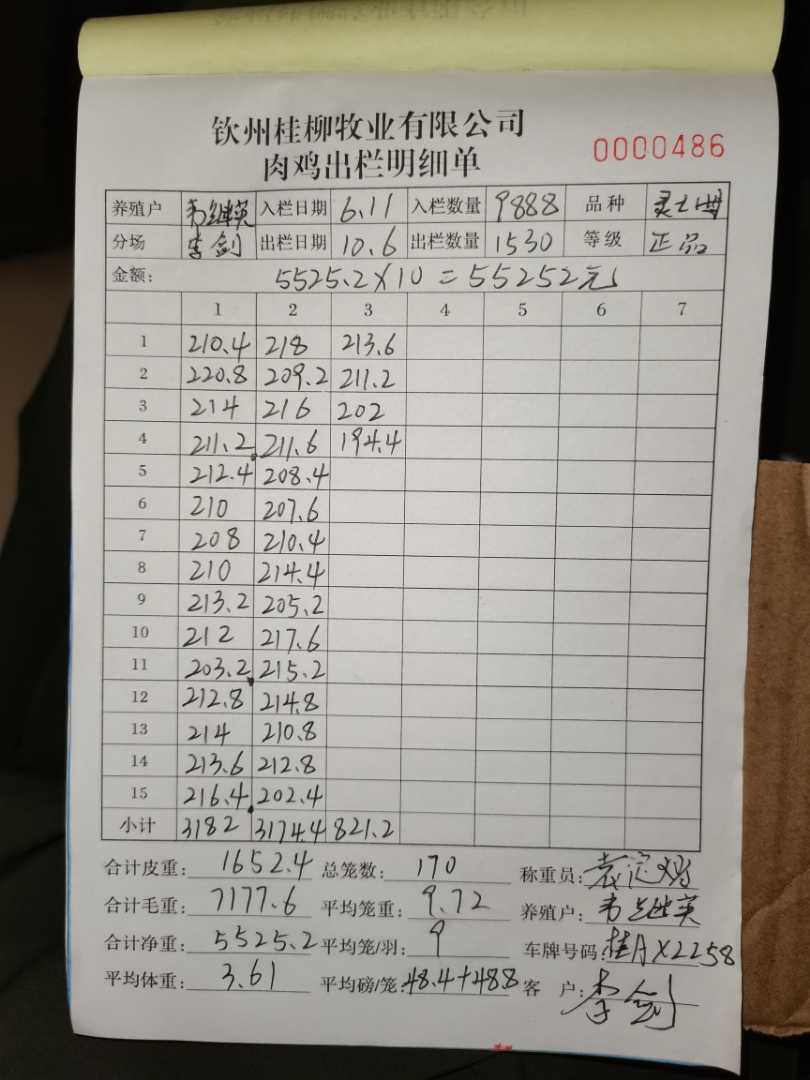 钦州桂柳牧业有限公司
肉鸡出栏明细单
0000486
养殖户 韦继英 入栏日期 6.11 入栏数量 9888 品种
分场 李剑 出栏日期 10.6 出栏数量 1530 等级 正品
金额: 5525.2×10=55252元
1 2 3 4 5 6 7
1 210.4 218 213.6
2 220.8 209.2 211.2
3 214 216 202
4 211.2 211.6 194.4
5 212.4 208.4
6 210 207.6
7 208 210.4
8 210 214.4
9 213.2 205.2
10 212 217.6
11 203.2 215.2
12 212.8 214.8
13 214 210.8
14 213.6 212.8
15 216.4 202.4
小计 3182 3174.4 821.2
合计皮重: 1652.4 总笼数: 170 称重员:
合计毛重: 7177.6 平均笼重: 9.72 养殖户: 韦继英
合计净重: 5525.2 平均笼/羽: 9 车牌号码: 桂AX2258
平均体重: 3.61 平均磅/笼: 48.4+488 客 户: 李剑